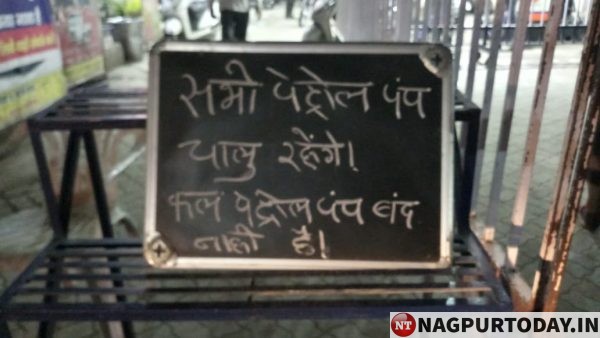 सभी पेट्रोल पंप
चालु रहेंगे।
कल पेट्रोल पंप बंद
नाही है।
NT NAGPURTODAY.IN